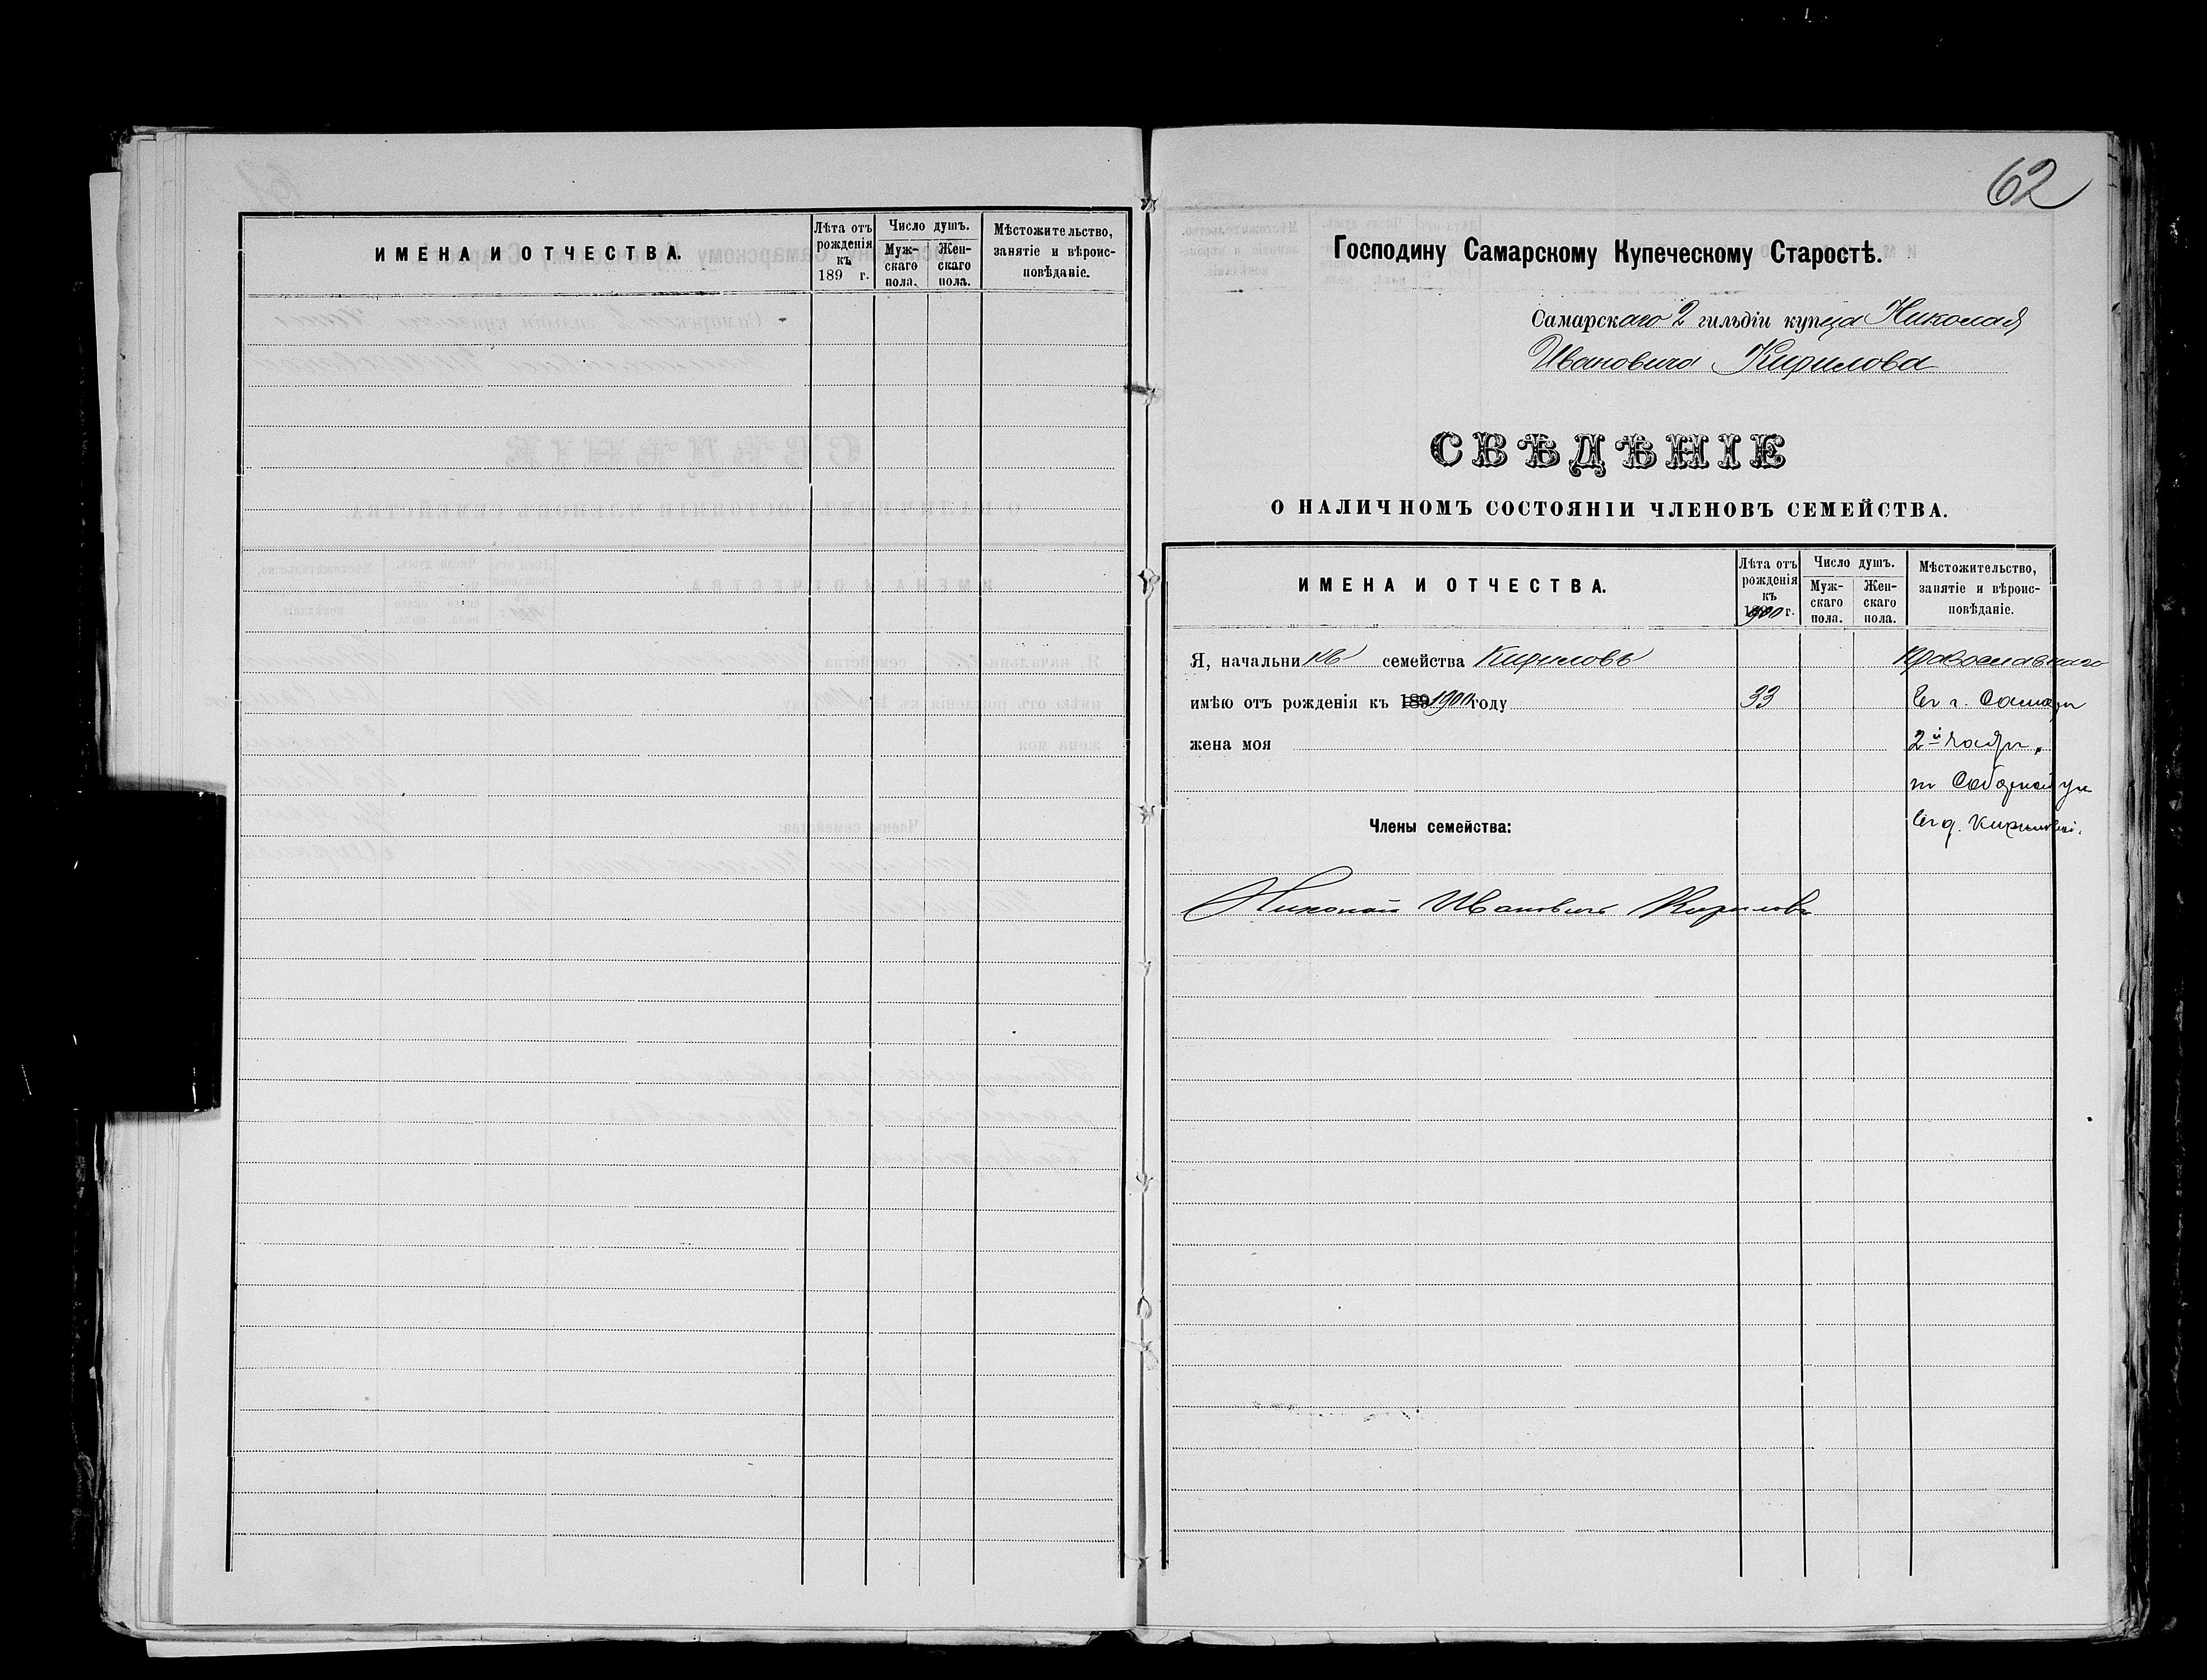 ИМЕНА И ОТЧЕСТВА.
Лѣта отъ рожденія къ 189 г.
Число душъ.
Мужскаго пола.
Женскаго пола.
Мѣстожительство, занятіе и вѣроисповѣданіе.
62
Господину Самарскому Купеческому Старостѣ.
Самарскаго 2 гильдіи купца Николая
Ивановича Кирилова
СВѢДѢНІЕ
О НАЛИЧНОМЪ СОСТОЯНІИ ЧЛЕНОВЪ СЕМЕЙСТВА.
ИМЕНА И ОТЧЕСТВА.
Лѣта отъ рожденія къ 1900 г.
Число душъ.
Мужскаго пола.
Женскаго пола.
Мѣстожительство, занятіе и вѣроисповѣданіе.
Я, начальникъ семейства Кириловъ Православнаго
имѣю отъ рожденія къ 189 1900 году 33 Въ г. Самарѣ
жена моя 2й части,
по Соборной ул
Члены семейства: въ д. Кириловой.
Николай Ивановичъ Кириловъ